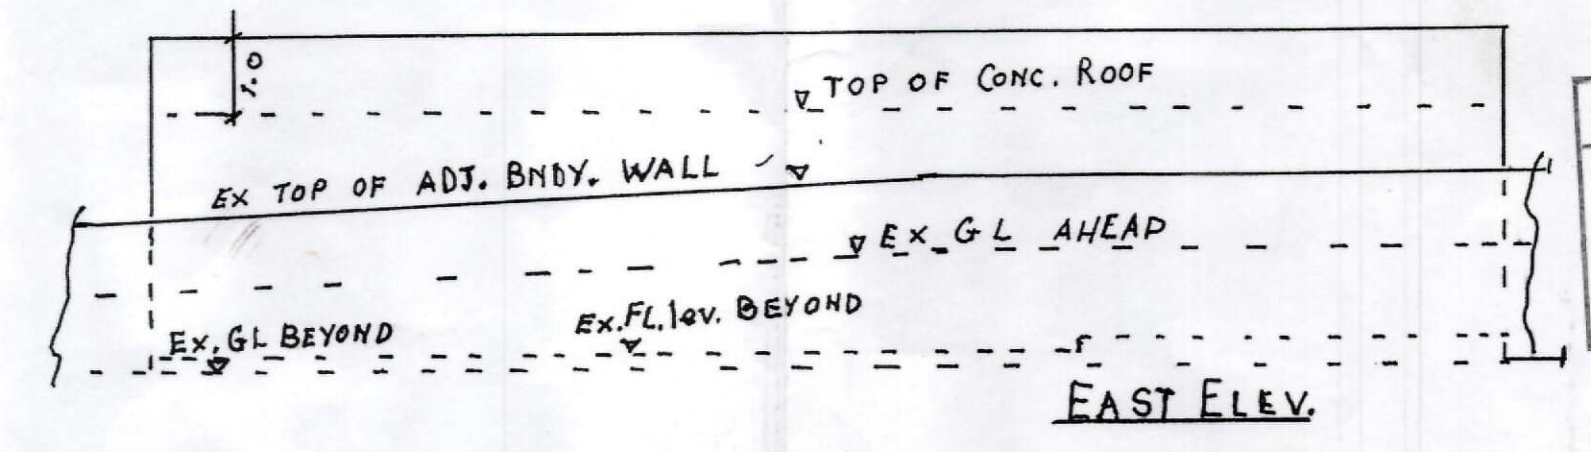 1.0
TOP OF CONC. ROOF
EX TOP OF ADJ. BNDY. WALL
EX GL AHEAP
Ex.FL.lev. BEYOND
Ex. GL BEYOND
EAST ELEV.